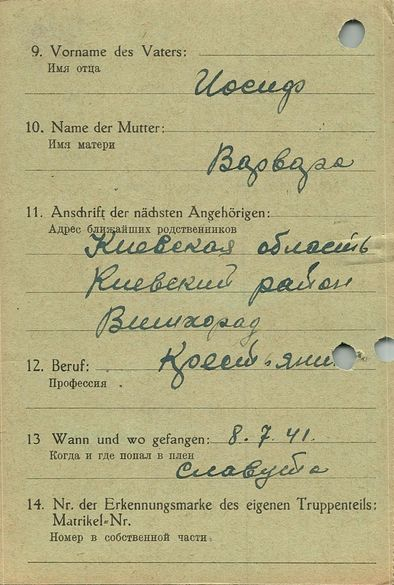 9. Vorname des Vaters:
Имя отца
Иосиф
10. Name der Mutter:
Имя матери
Варвара
11. Anschrift der nächsten Angehörigen:
Адрес ближайших родственников
Киевская область
Киевский район
Вишгорад
12. Beruf:
Крестьянин
Профессия
13 Wann und wo gefangen: 8. 7. 41.
Когда и где попал в плен
Славута
14. Nr. der Erkennungsmarke des eigenen Truppenteils:
Matrikel-Nr.
Номер в собственной части